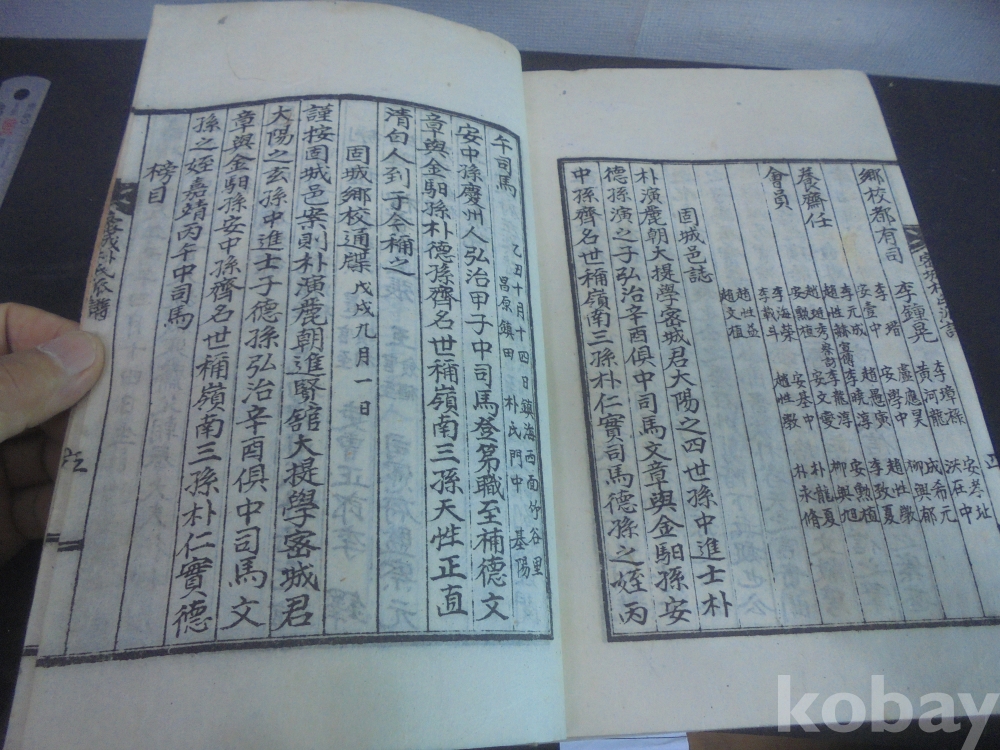 鄕校都有司 李鍾晃 李璋祿 安孝址
黃河龍 洪在中
成希元
盧應昊 柳興郁
安壹中 安學中 趙性敎
養齋任 李元成 趙愚寅 李致夏
李曉淳 安斁植
安 植 李龍淳 柳興旭
會員 李海榮 安文愛 朴龍夏
李載斗 安基中 朴永脩
趙性益 趙性斅
趙文植
固城邑誌
朴演麗朝大提學密城君大陽之四世孫中進士朴
德孫演之子弘治辛酉俱中司馬文章與金馹孫安
中孫齊名世稱嶺南三孫朴仁實司馬德孫之姪丙
午司馬
乙丑十月十四日鎭海西面竹谷里
昌原鎭田朴氏門中 基陽
安中孫慶州人弘治甲子中司馬登第職至補德文
章與金馹孫朴德孫齊名世稱嶺南三孫天性正直
清白人到于今稱之
固城鄕校通牒 戊戌九月一日
謹按固城邑案則朴演麗朝進賢舘大提學密城君
大陽之玄孫中進士子德孫弘治辛酉俱中司馬文
章與金馹孫安中孫齊名世稱嶺南三孫朴仁實德
孫之姪嘉靖丙午中司馬
榜目
密城朴氏派譜
kobay